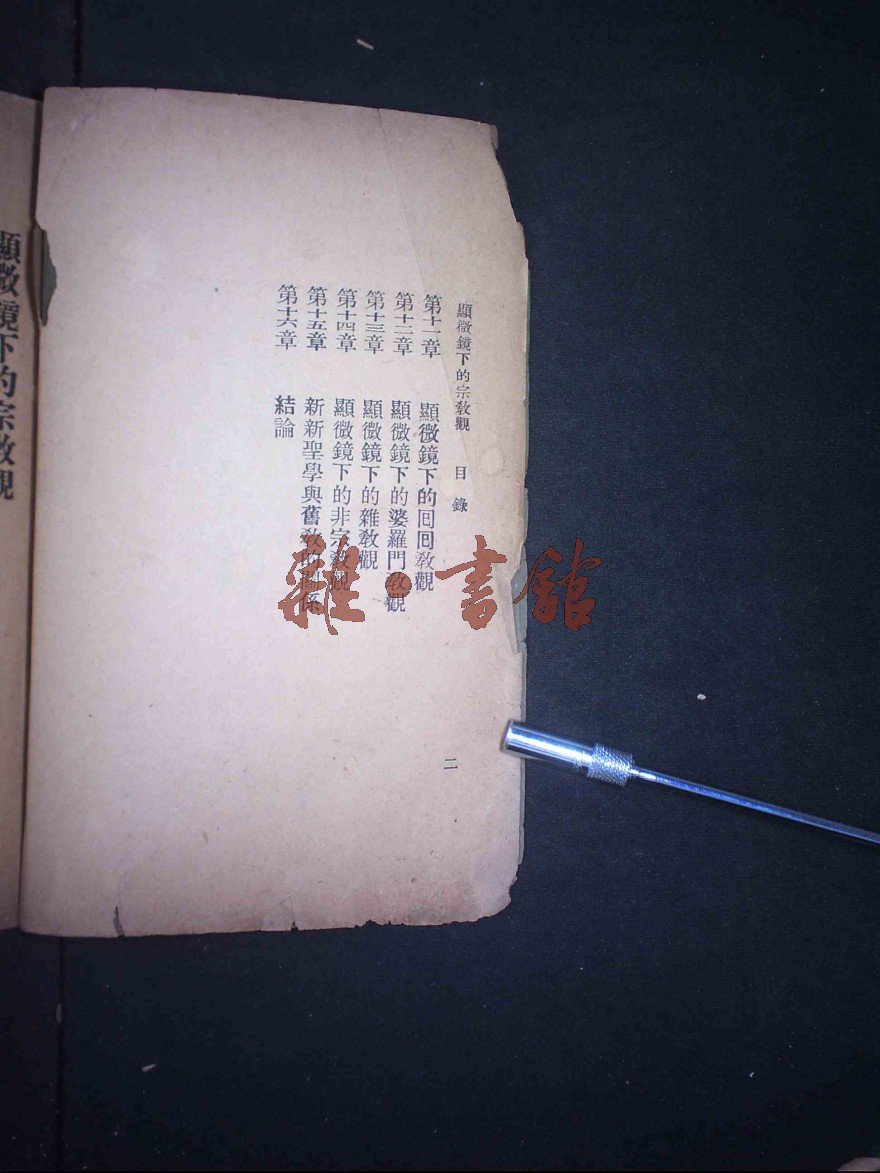 顯微鏡下的宗教觀 目錄
第十一章 顯微鏡下的囘囘教觀
第十二章 顯微鏡下的婆羅門教觀
第十三章 顯微鏡下的雜教觀
第十四章 顯微鏡下的非宗教觀
第十五章 新新聖學與舊教的關係
第十六章 結論
二
顯微鏡下的宗教觀
雜·書館